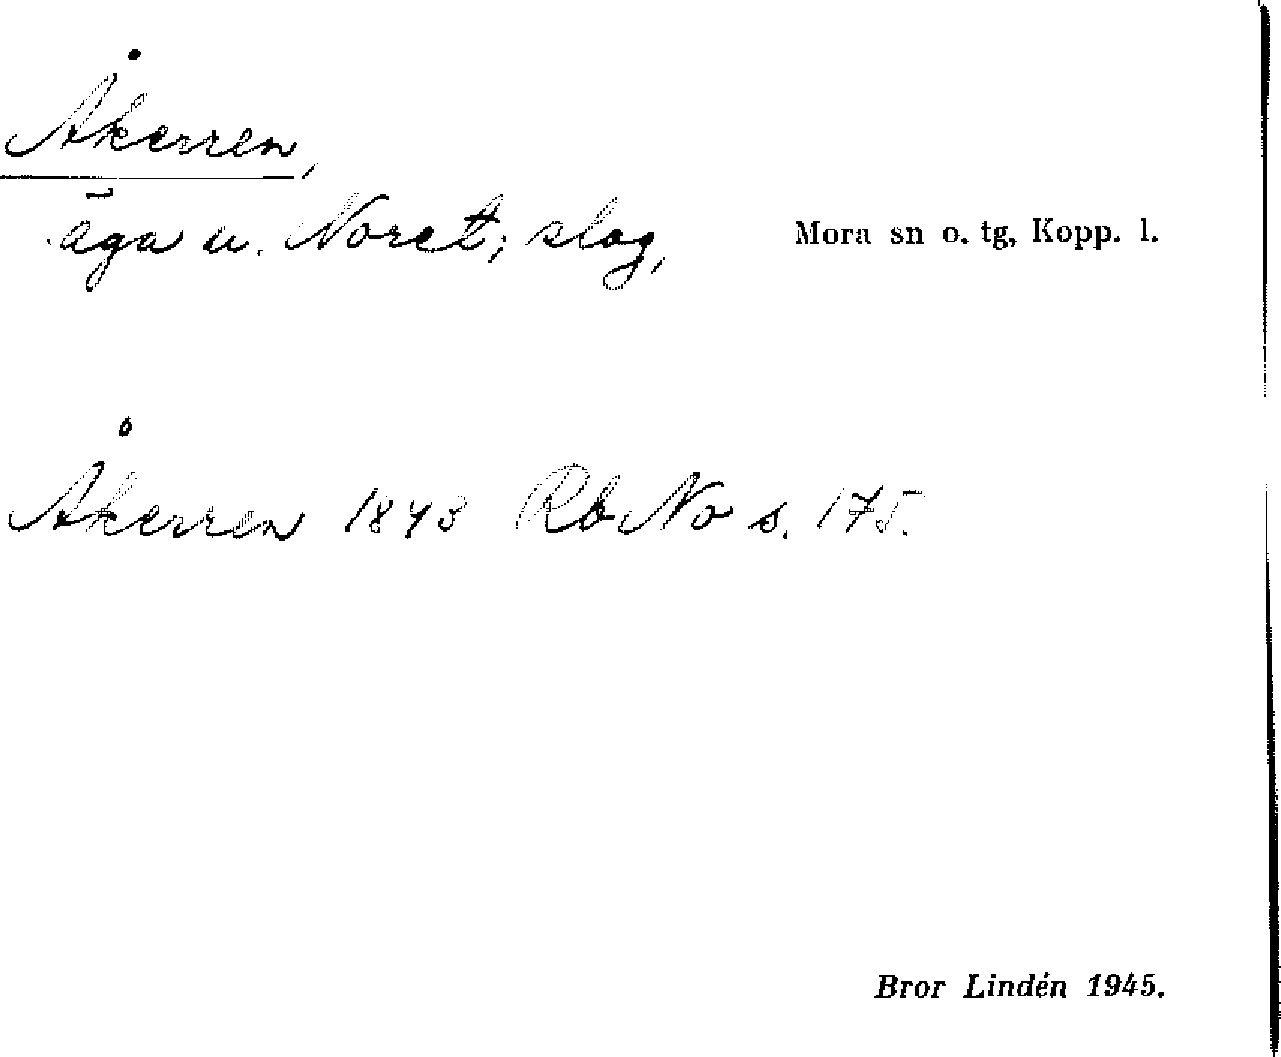 Åkerren,
äga u. Noret; slog, Mora sn o. tg, Kopp. l.
Åkerren 1843 Rb No s. 175.
Bror Lindén 1945.